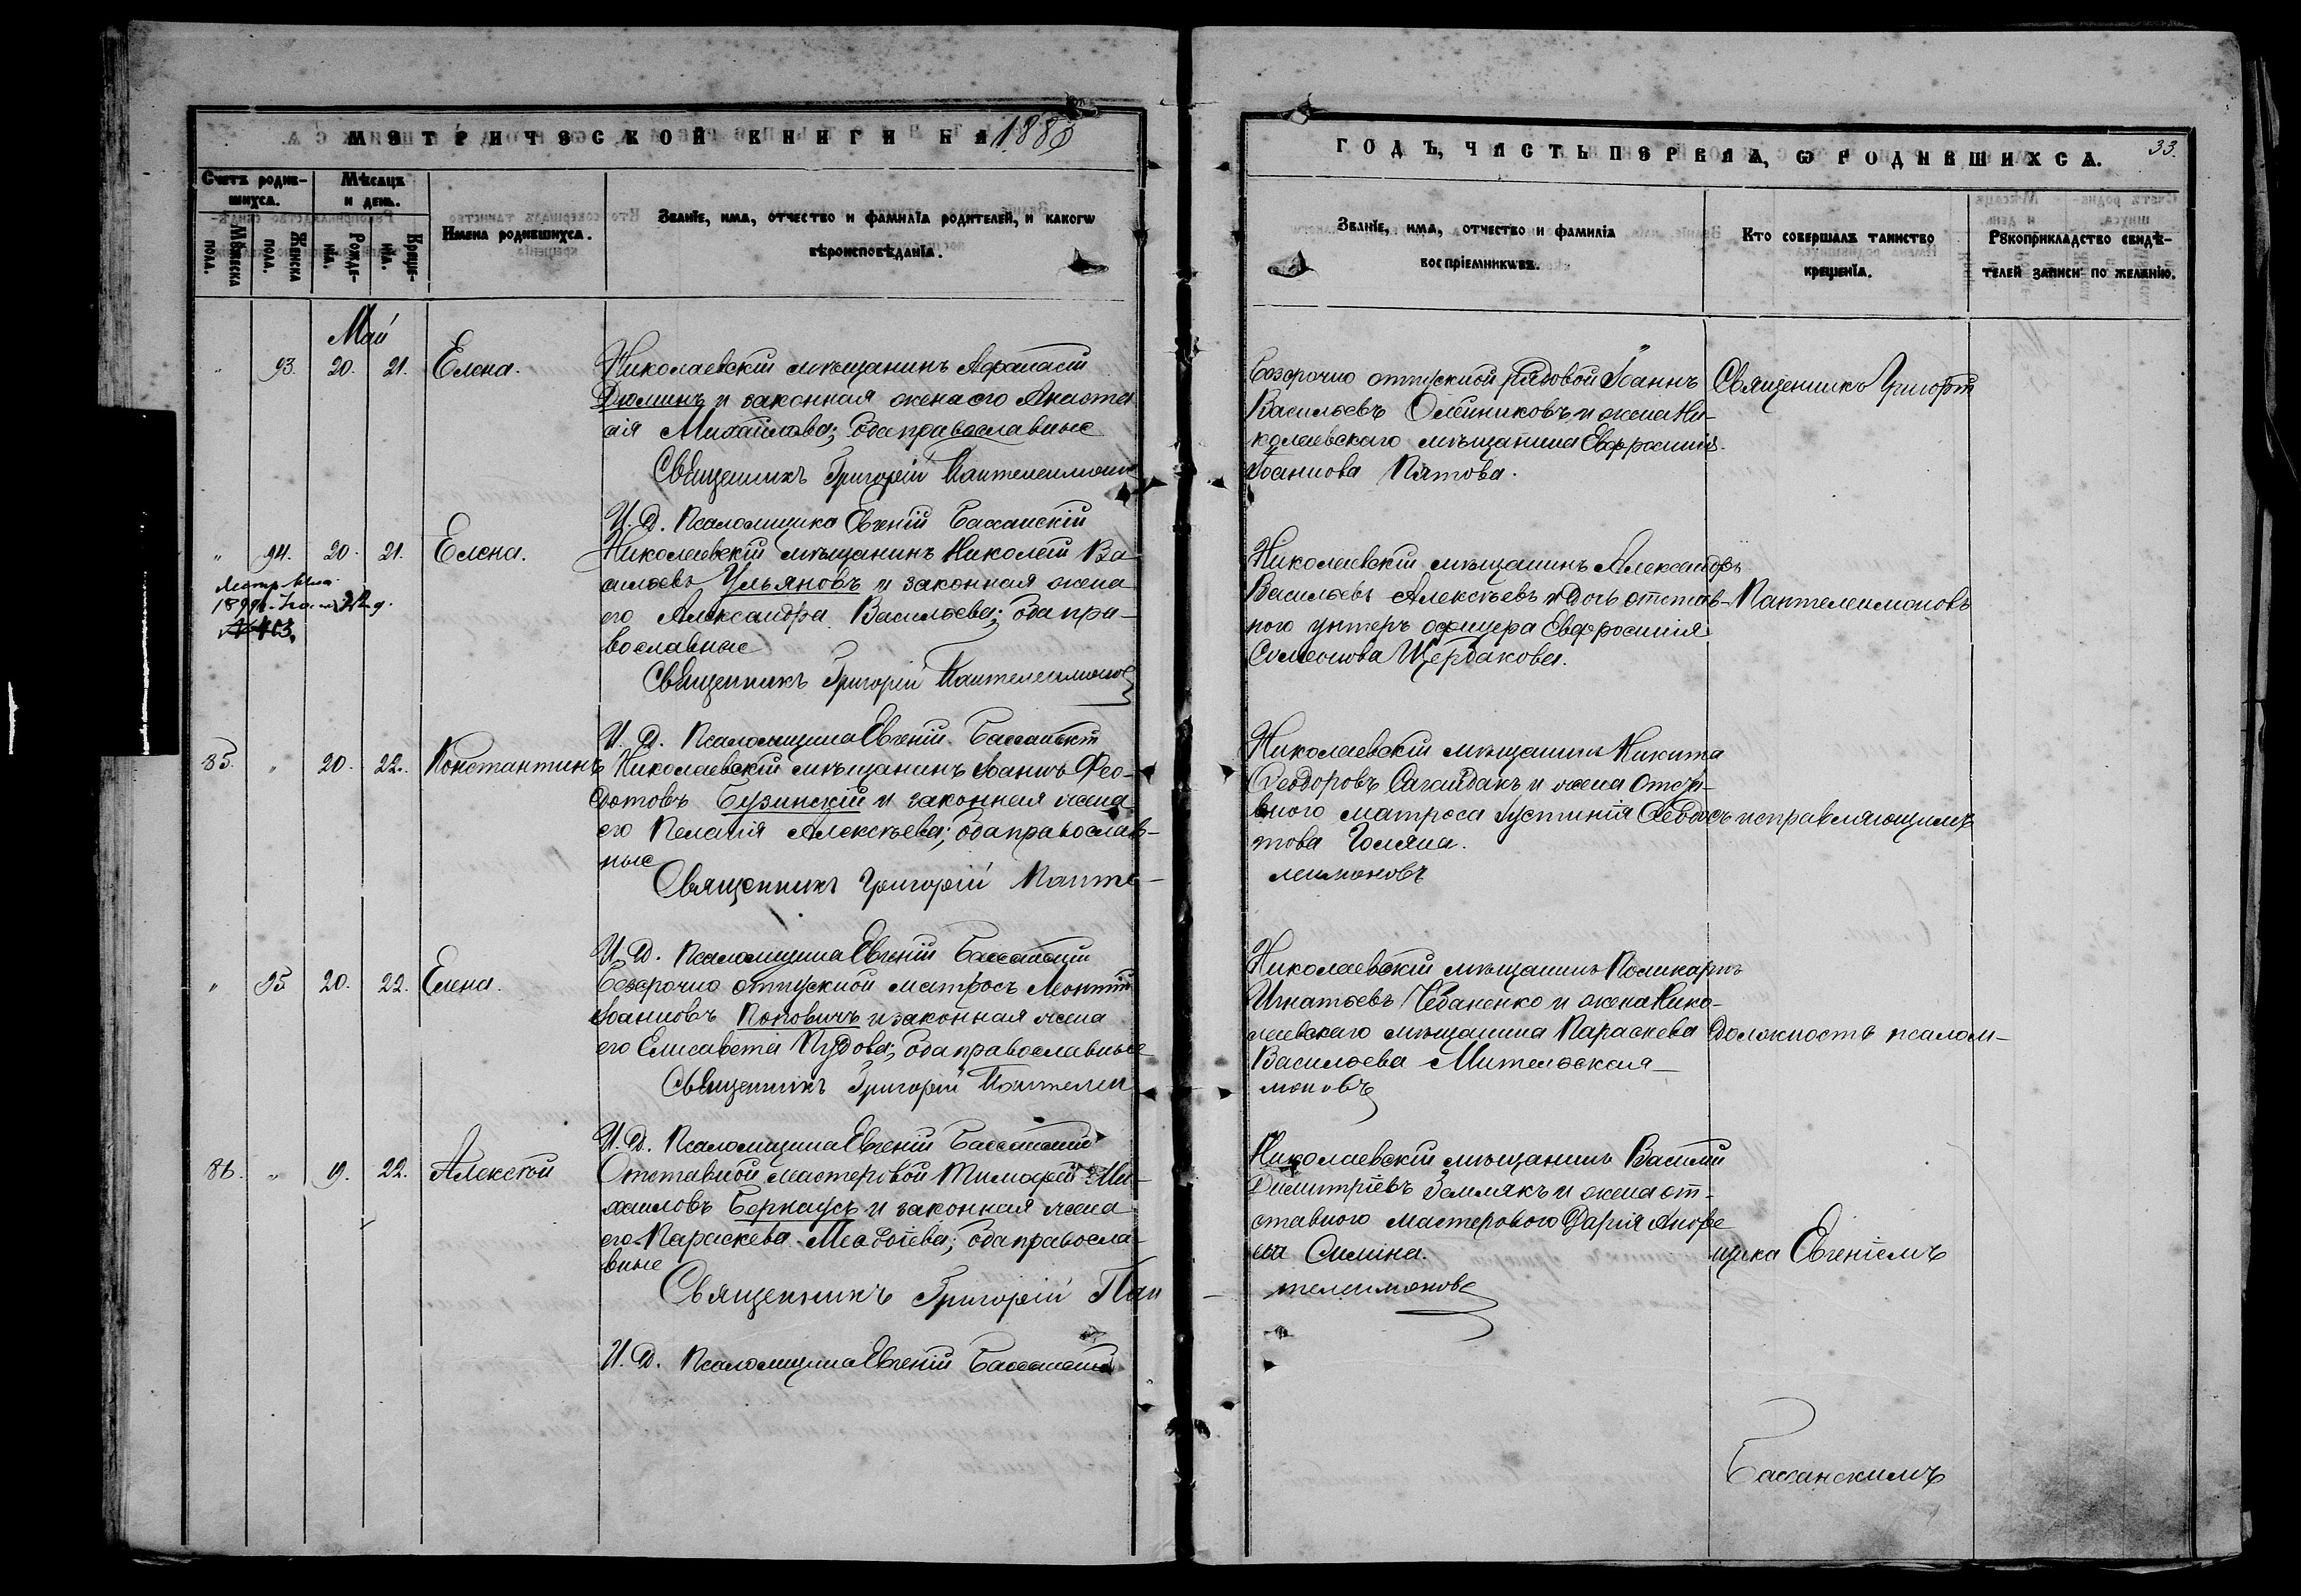 МЕТРИЧЕСКОЙ КНИГИ НА 1883
Счетъ родив-
шихся.
Мѣсяцъ
и день.
Мѹжеска
пола.
Женска
пола.
Рожде-
нїѧ.
Креще-
нїѧ.
Имена родившихся.
Званїе, имѧ, отчество и фамилїѧ родителей, и какогѡ
вѣроисповѣданїѧ.
Май
" 93. 20. 21. Елена.
Николаевскій мѣщанинъ Афанасій
Дюминъ и законная жена его Анаста
сія Михайлова; оба православные
Священникъ Григорій Пантелеимонов
И. Д. Псаломщика Евгеній Бассанскій
" 94. 20. 21. Елена.
Николаевскій мѣщанинъ Николай Ва-
сильевъ Ульяновъ и законная жена
его Александра Васильева; оба пра-
вославные
Священникъ Григорій Пантелеимонов
И. Д. Псаломщика Евгеній Бассанскій
85. " 20. 22. Константинъ
Николаевскій мѣщанинъ Іоаннъ Фео-
дотовъ Бузинскій и законная жена
его Пелагія Алексѣева; оба православ-
ные
Священникъ Григорій Панте-
И. Д. Псаломщика Евгеній Бассанскій
" 95 20. 22. Елена.
Безсрочно отпускной матросъ Леонтій
Іоанновъ Поповичъ и законная жена
его Елисавета Пудова; оба православные
Священникъ Григорій Пантелеи
И. Д. Псаломщика Евгеній Бассанскій
86. " 19. 22. Алексѣй
Отставной мастеровой Тимофей Ми-
хаиловъ Бернаусъ и законная жена
его Параскева; оба правосла-
вные
Священникъ Григорій Пан
И. Д. Псаломщика Евгеній Бассанскій
ГОДЪ, ЧАСТЬ ПЕРВАЯ, Ѡ РОДИВШИХСЯ. 33.
Званїе, имѧ, отчество и фамилїѧ
воспрїемникѡвъ.
Кто совершалъ таинство
крещенїѧ.
Рѹкоприкладство свидѣ-
телей записи по желанїю.
Безсрочно отпускной рядовой Іоаннъ
Васильевъ Олейниковъ и жена Ни-
колаевскаго мѣщанина Евфросинія
Іоаннова Пятова.
Священникъ Григорій
Николаевскій мѣщанинъ Александръ
Васильевъ Алексѣевъ и дочь отстав-
ного унтеръ офицера Евфросинія
Симеонова Щербакова.
Пантелеимоновъ
Николаевскій мѣщанинъ Никита
Феодоровъ Сагайдакъ и жена отста-
вного матроса Іустинія Феодо-
това Голяна.
леимоновъ
съ исправляющимъ
Николаевскій мѣщанинъ Поликарпъ
Игнатьевъ Чебаненко и жена Нико-
лаевскаго мѣщанина Параскева
Васильева Мительская
моновъ
должность псалом-
Николаевскій мѣщанинъ Василій
Димитріевъ Землякъ и жена от-
ставного мастероваго Дарія Андре
ева Силина.
телеимонов
щика Евгеніемъ
Бассанскимъ